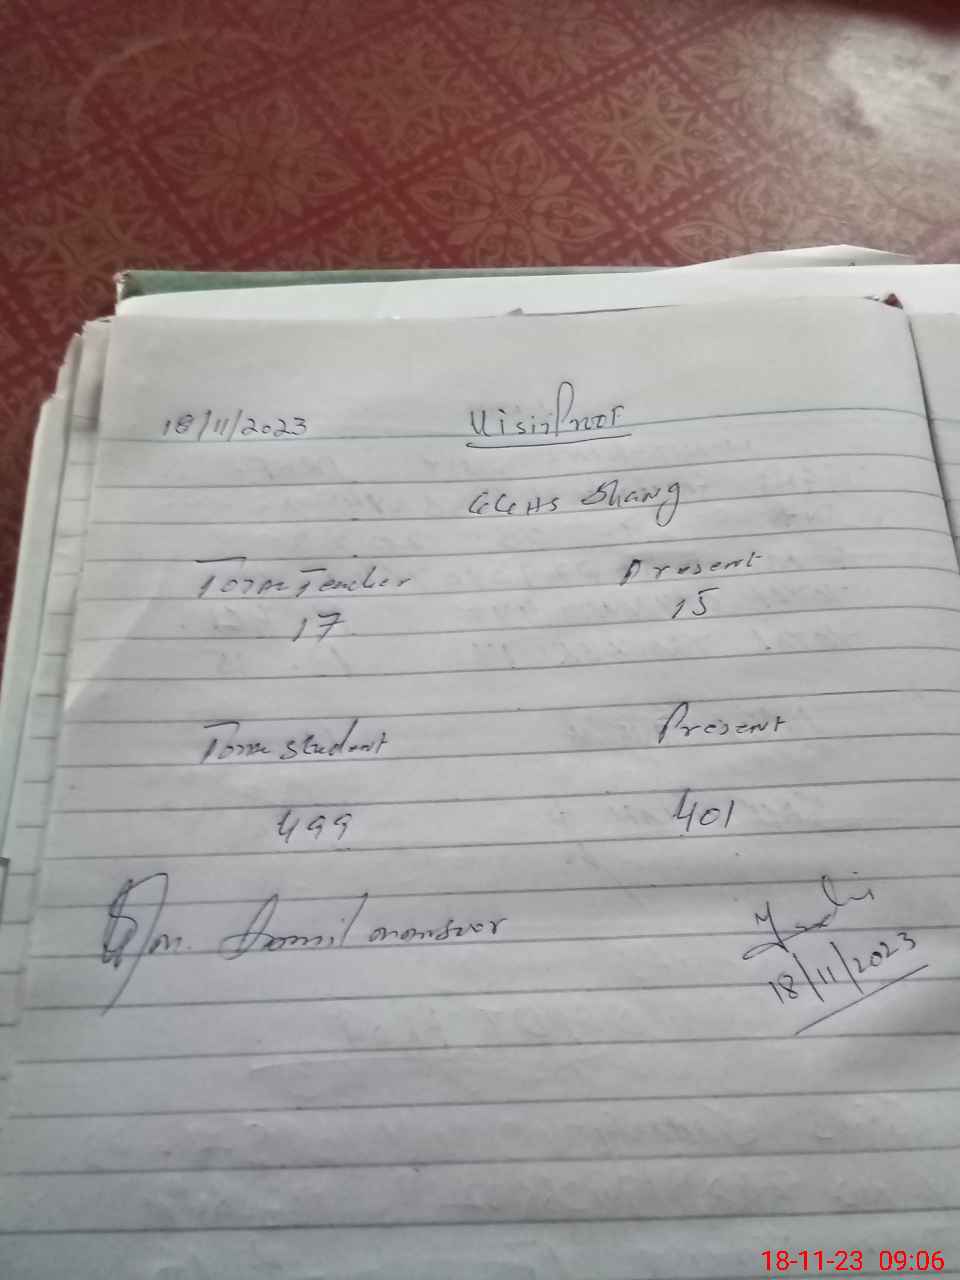 18/11/2023 Visit Proof
GGHS Shang
Total Teacher Present
17 15
Total student Present
499 401
m. Jamil mansoor
18/11/2023
18-11-23 09:06